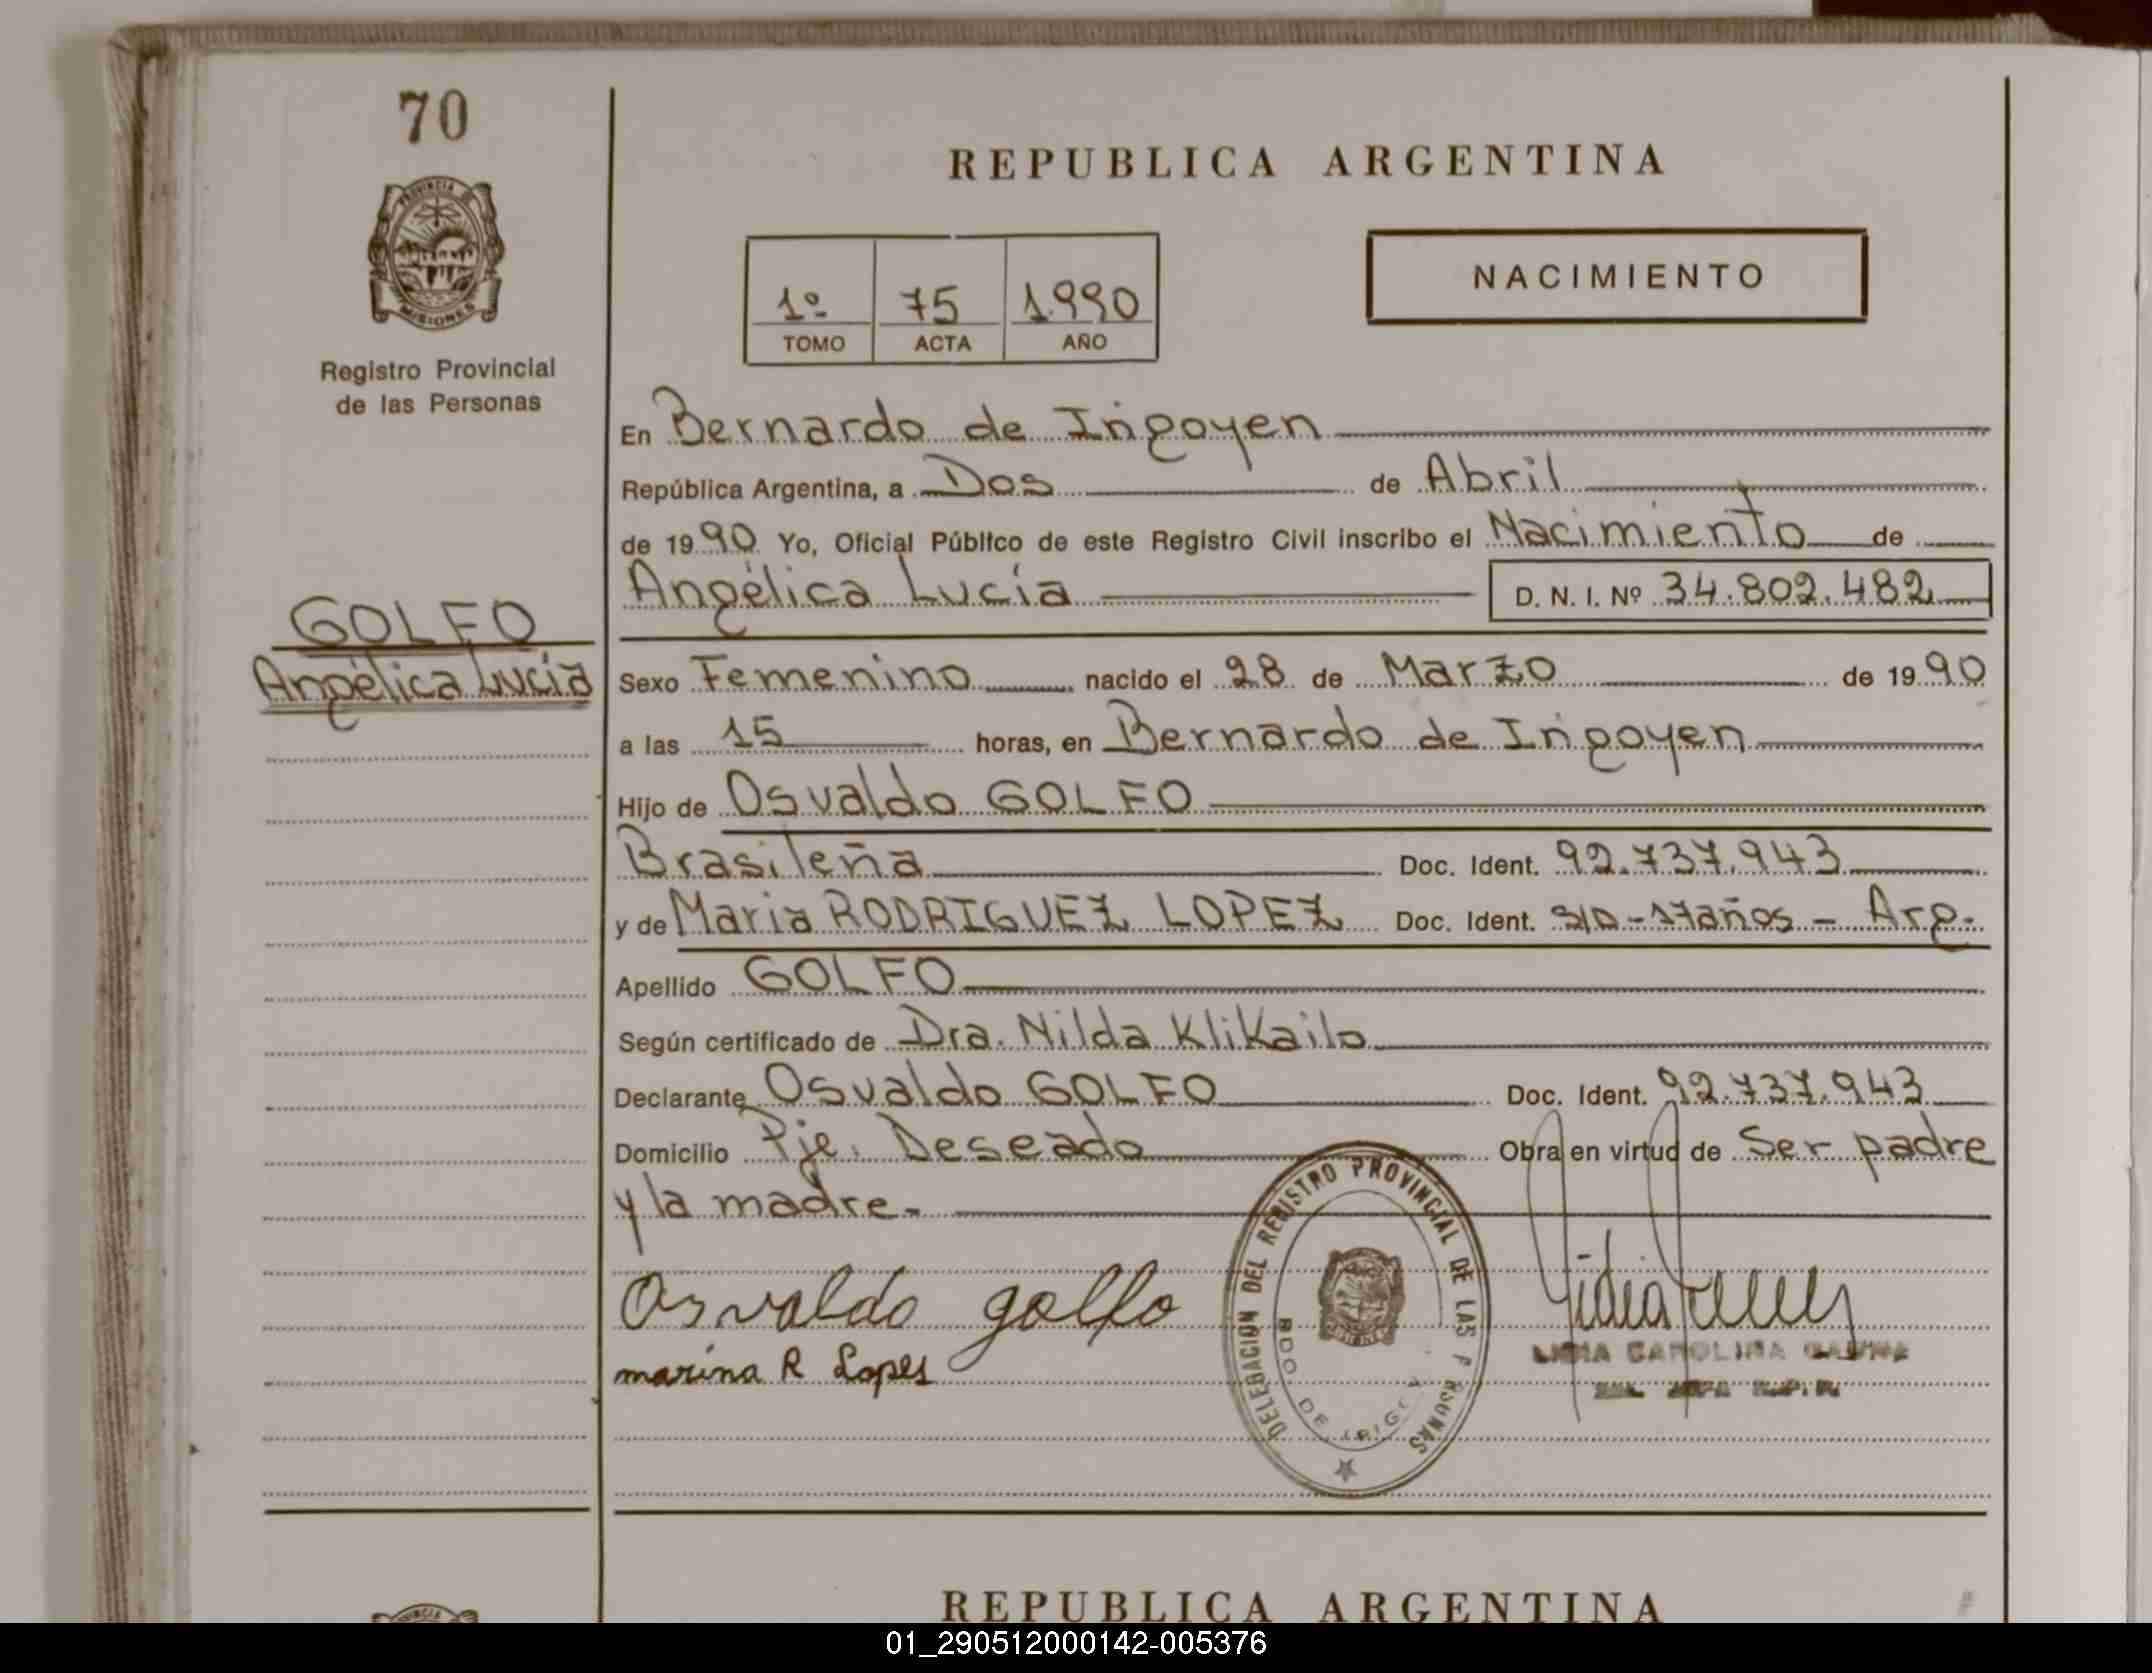 70
REPUBLICA ARGENTINA
PROVINCIA DE
MISIONES
Registro Provincial
de las Personas
1º 75 1.990
TOMO ACTA AÑO
NACIMIENTO
En Bernardo de Irigoyen
República Argentina, a Dos de Abril
de 1990 Yo, Oficial Público de este Registro Civil inscribo el Nacimiento de
Angélica Lucía D. N. I. Nº 34.802.482
GOLFO
Angélica Lucía
Sexo Femenino nacido el 28 de Marzo de 1990
a las 15 horas, en Bernardo de Irigoyen
Hijo de Osvaldo GOLFO
Brasileña Doc. Ident. 92.737.943
y de Maria RODRIGUEZ LOPEZ Doc. Ident. S/D-17años - Arg.
Apellido GOLFO
Según certificado de Dra. Nilda Klikailo
Declarante Osvaldo GOLFO Doc. Ident. 92.737.943
Domicilio Pje. Deseado Obra en virtud de Ser padre
y la madre.-
DELEGACION DEL REGISTRO PROVINCIAL DE LAS PERSONAS
BDO. DE IRIGOYEN
Osvaldo golfo
marina R Lopes
LIDIA CAROLINA
REPUBLICA ARGENTINA
01_290512000142-005376